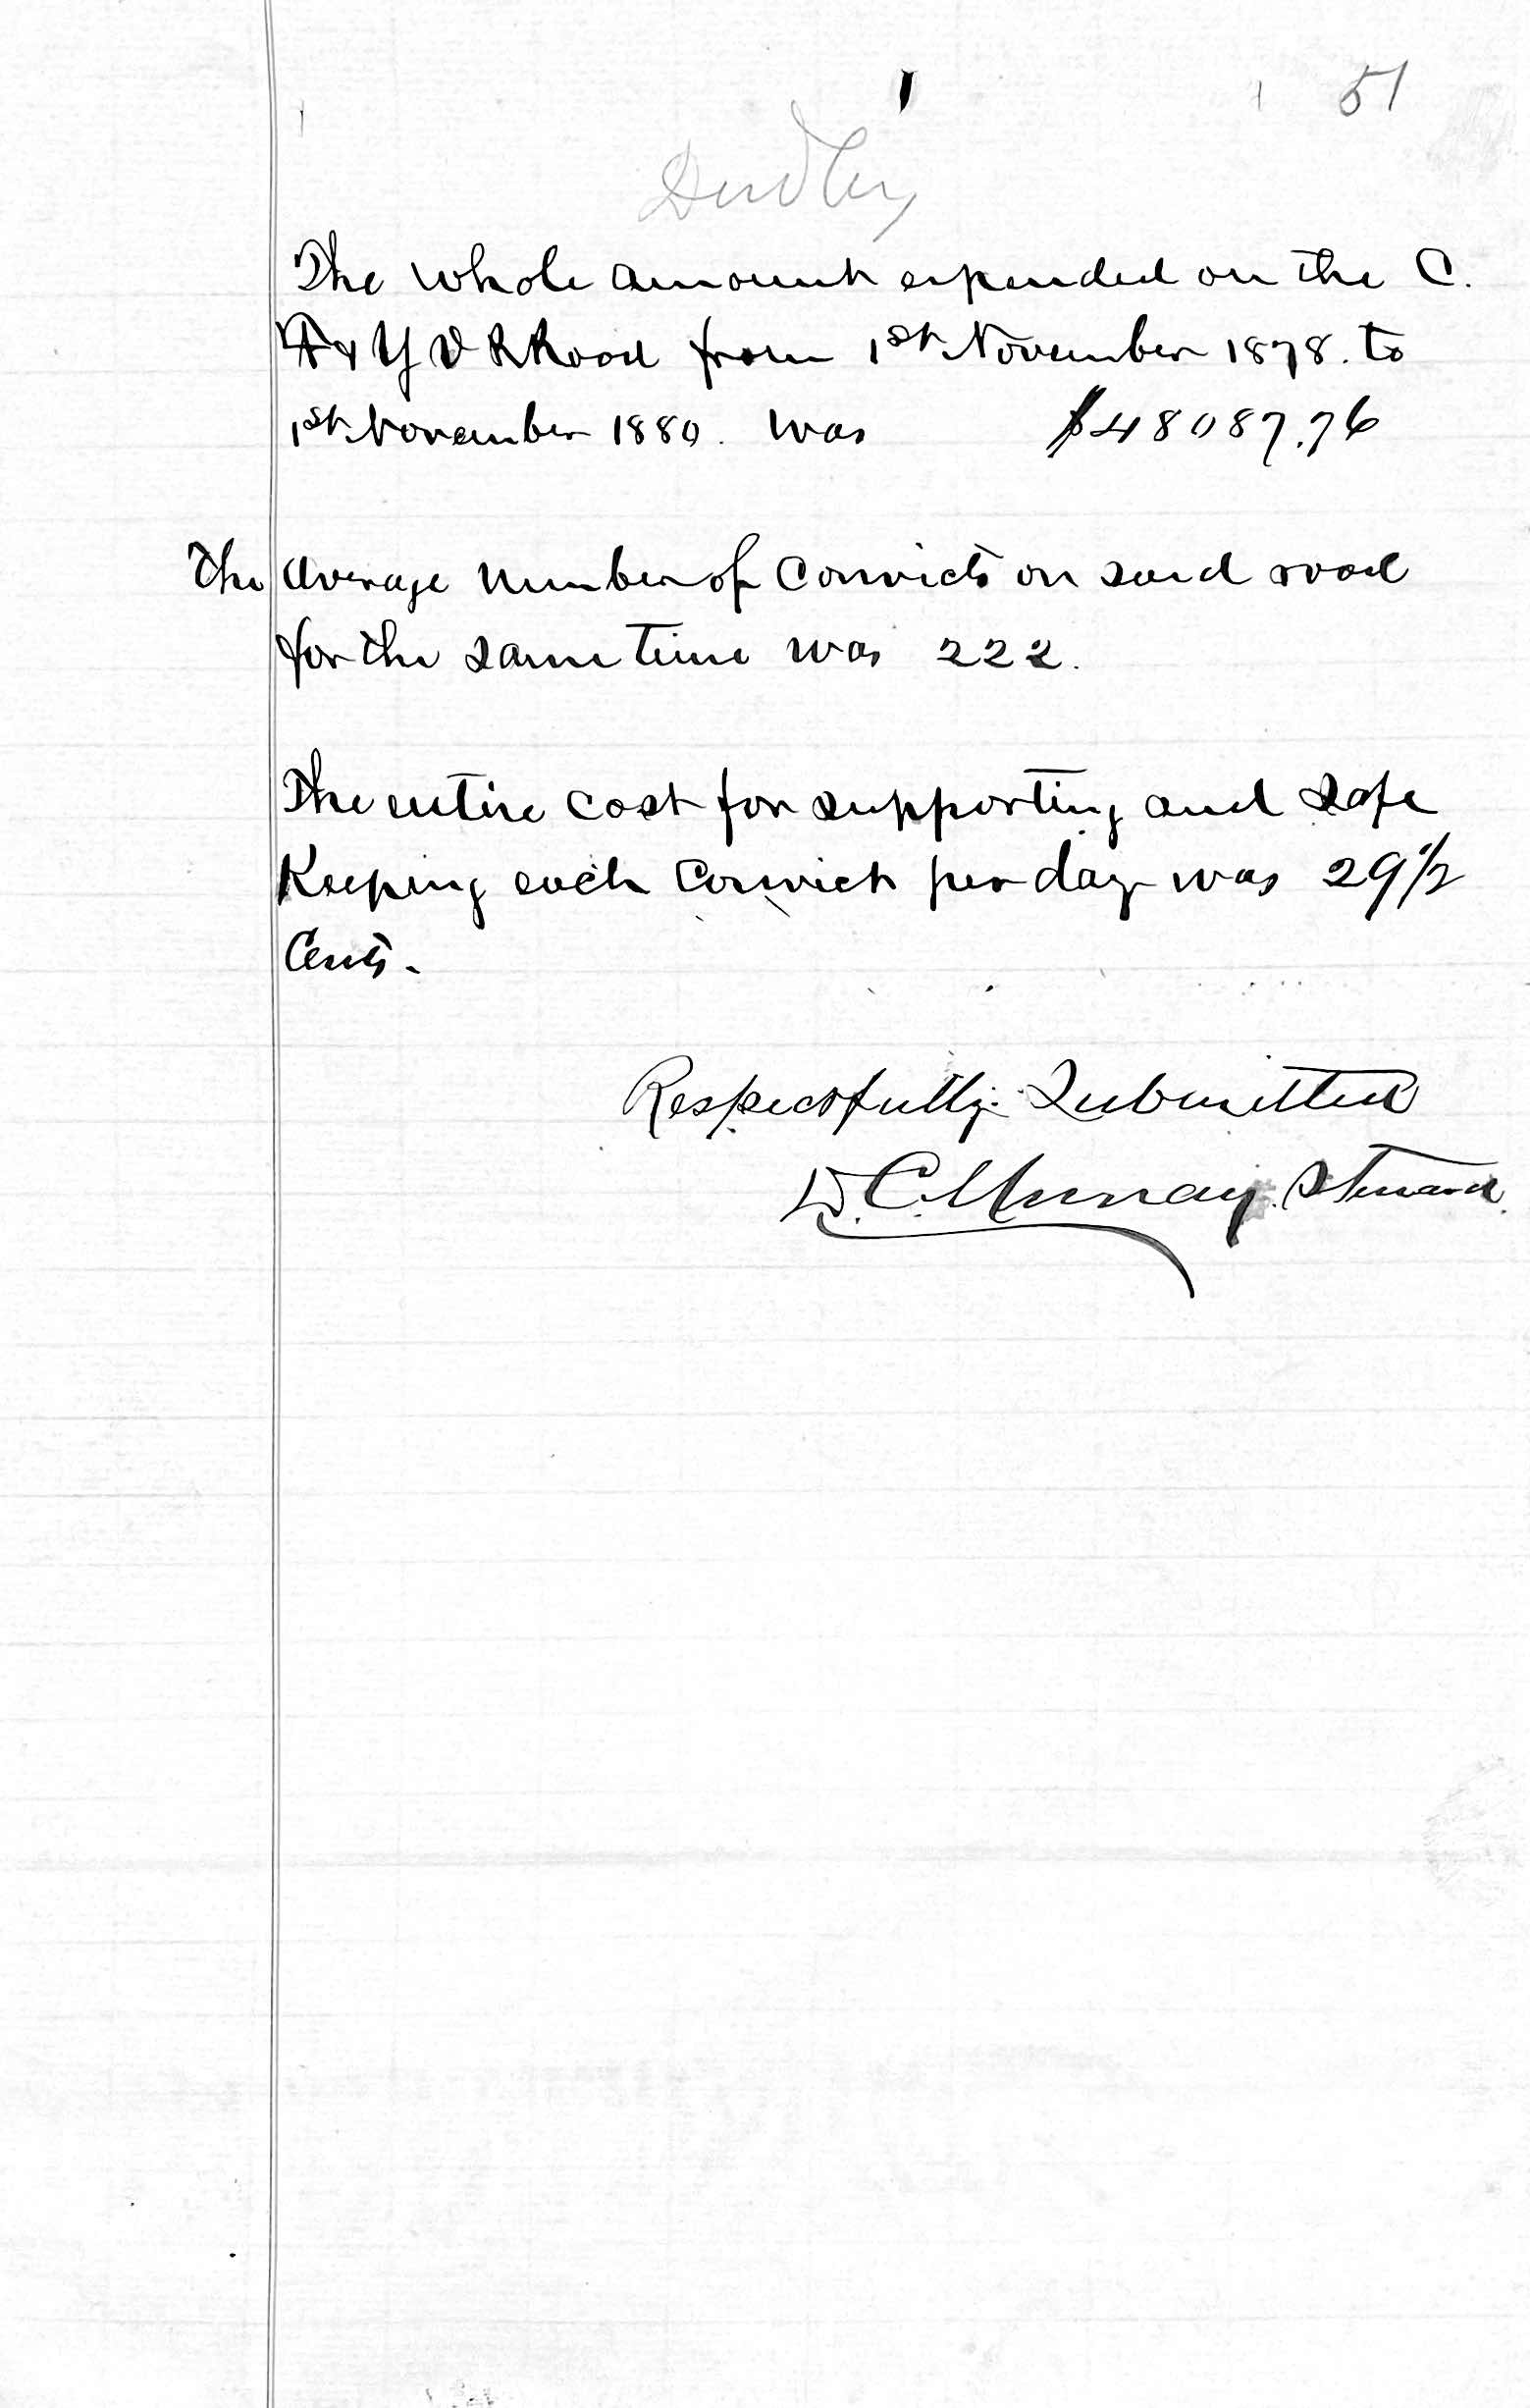 51
Dudley
The whole amount expended on the C.
F & Y V R Road from 1st November 1878. to
1st November 1880. was $48087.76
The average number of Convicts on said road
for the same time was 222.
The entire cost for supporting and safe
Keeping each Convict per day was 29 1/2
Cents.
Respectfully Submitted
D. C. Murray. Steward.